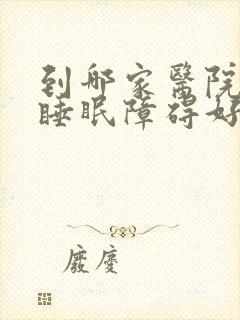 到哪家醫院
睡眠障碍好
廢慶